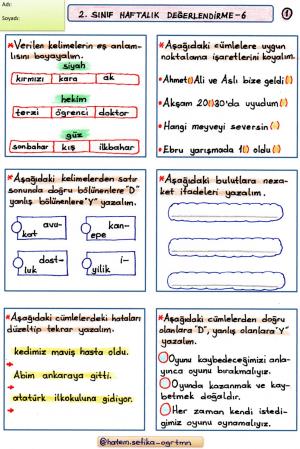 Ad:
Soyadı:
2. SINIF HAFTALIK DEĞERLENDİRME-6
1
*Verilen kelimelerin eş anlam-
lısını boyayalım.
siyah
kırmızı kara ak
hekim
terzi öğrenci doktor
güz
sonbahar kış ilkbahar
*Aşağıdaki cümlelere uygun
noktalama işaretlerini koyalım.
*Ahmet( )Ali ve Aslı bize geldi( )
*Akşam 20( )30'da uyudum( )
*Hangi meyveyi seversin( )
*Ebru yarışmada 1( ) oldu( )
*Aşağıdaki kelimelerden satır
sonunda doğru bölünenlere "D"
yanlış bölünenlere "Y" yazalım.
avu-
kat
kan-
epe
dost-
luk
i-
yilik
*Aşağıdaki bulutlara neza-
ket ifadeleri yazalım.
*Aşağıdaki cümlelerdeki hataları
düzeltip tekrar yazalım.
kedimiz maviş hasta oldu.
Abim ankaraya gitti.
atatürk ilkokuluna gidiyor.
*Aşağıdaki cümlelerden doğru
olanlara "D", yanlış olanlara "Y"
yazalım.
Oyunu kaybedeceğimizi anla-
yınca oyunu bırakmalıyız.
Oyunda kazanmak ve kay-
betmek doğaldır.
Her zaman kendi istedi-
ğimiz oyunu oynamalıyız.
@hatem.sefika-ogrtmn